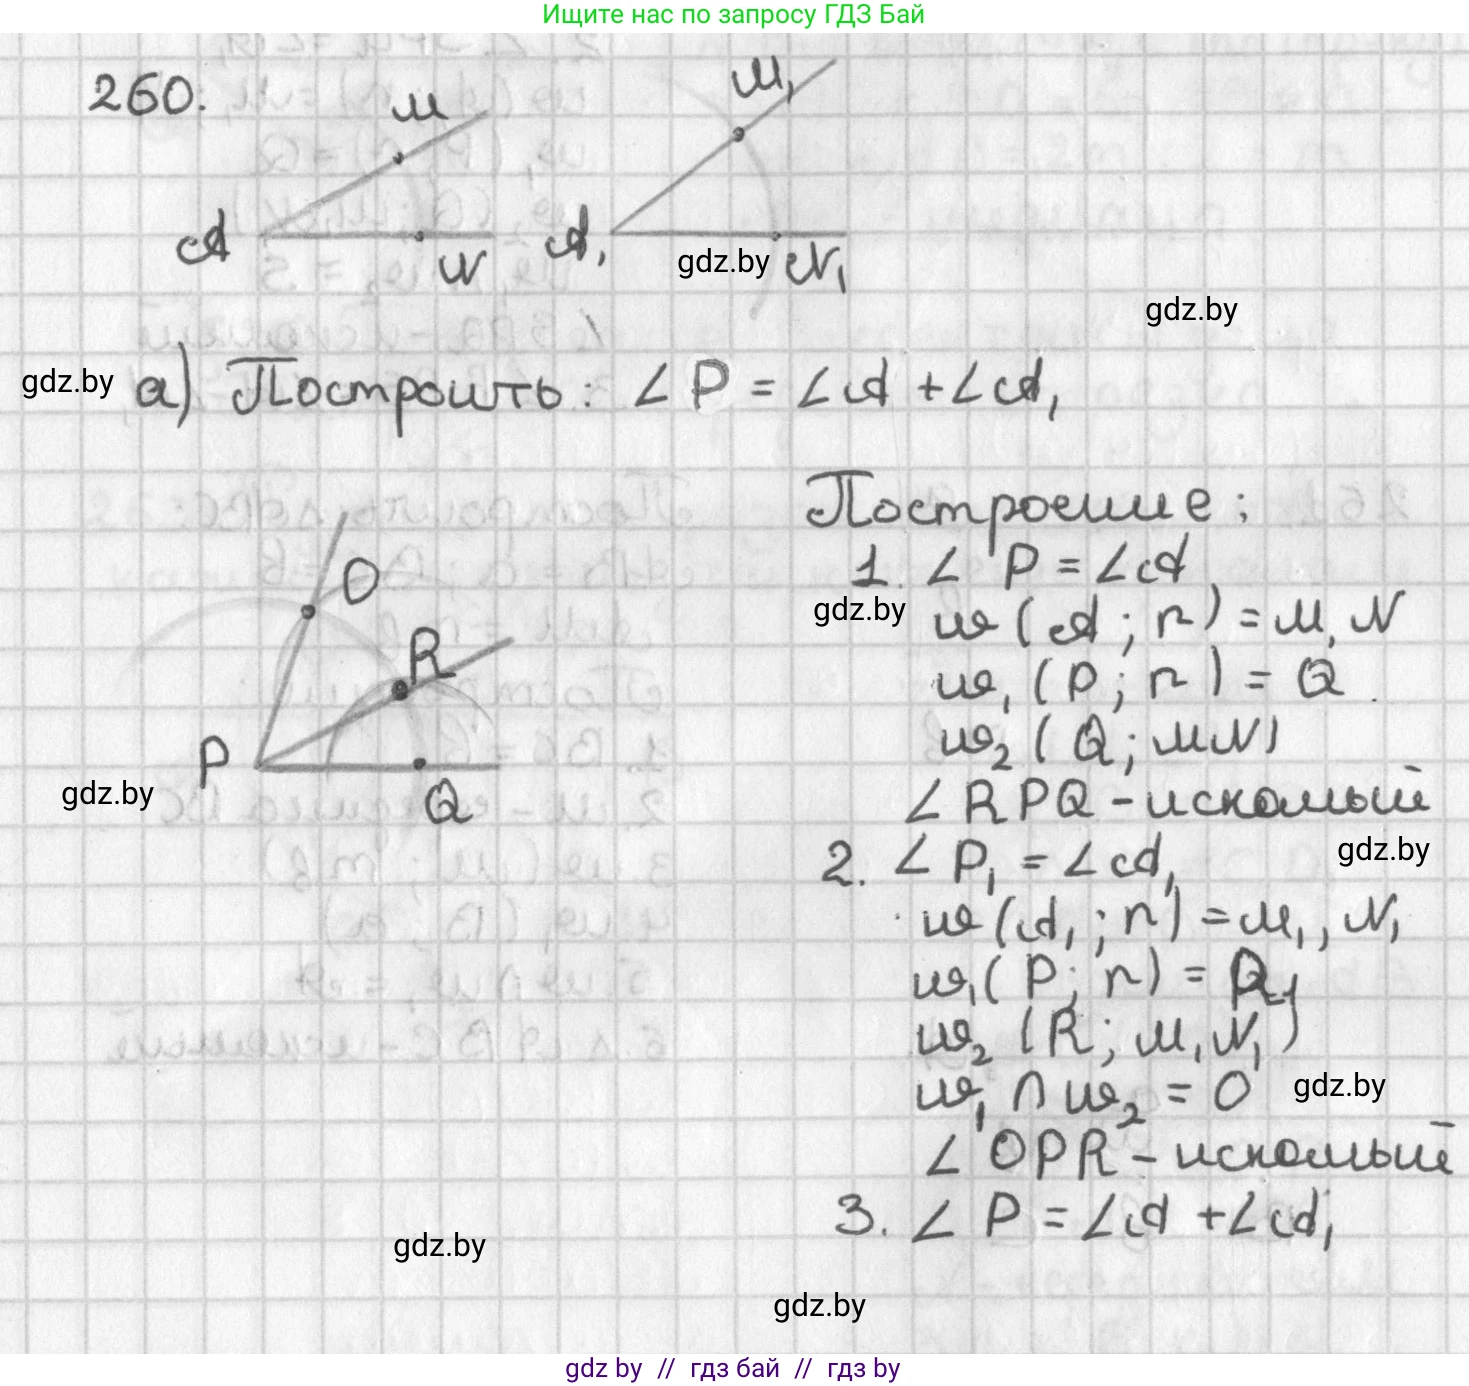 Ищите нас по запросу ГДЗ Бай
260.
M
M₁
A
N
A₁
N₁
gdz.by
gdz.by
gdz.by
а) Построить: ∠P = ∠A + ∠A₁
Построение:
1. ∠P = ∠A
gdz.by
ω(A; r) = M, N
ω₁(P; r) = Q
ω₂(Q; MN)
∠RPQ - искомый
O
R
P
Q
gdz.by
2. ∠P₁ = ∠A₁
gdz.by
ω(A₁; r) = M₁, N₁
ω₁(P; r) =
ω₂(R; M₁N₁)
ω₁ ∩ ω₂ = O
gdz.by
∠OPR - искомый
3. ∠P = ∠A + ∠A₁
gdz.by
gdz.by
gdz by // гдз бай // гдз by